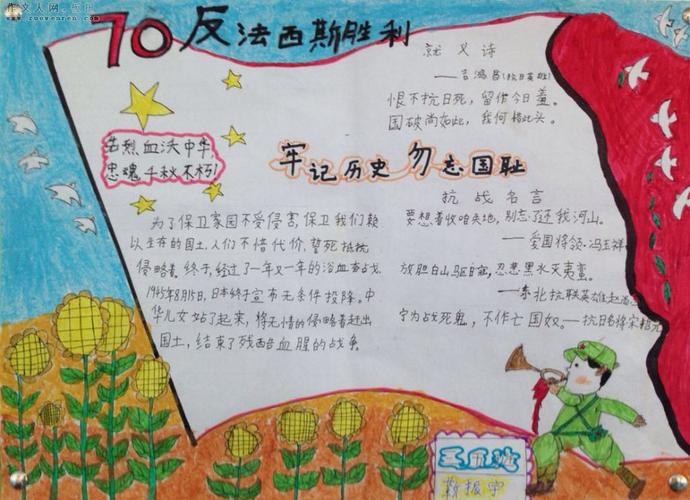 作文人网.版权
www.zuowenren.com
70反法西斯胜利
就义诗
——吉鸿昌(抗日英雄)
恨不抗日死，留作今日羞。
国破尚如此，我何惜此头。
烈血沃中华,
忠魂千秋不朽!
牢记历史 勿忘国耻
为了保卫家园不受侵害,保卫我们赖
以生存的国土,人们不惜代价,誓死抵抗
侵略着,终于,经过了一年又一年的浴血奋战,
1945年8月15日,日本终于宣布无条件投降。中
华儿女站了起来,将无情的侵略着赶出
国土,结束了残酷血腥的战争。
抗战名言
要想着收咱失地，别忘了还我河山。
——爱国将领·冯玉祥
放胆白山驱日寇，忍悲黑水灭夷蛮。
——东北抗联英雄赵尚
宁为战死鬼，不作亡国奴。——抗日名将宋哲元
三五班
靳振宇